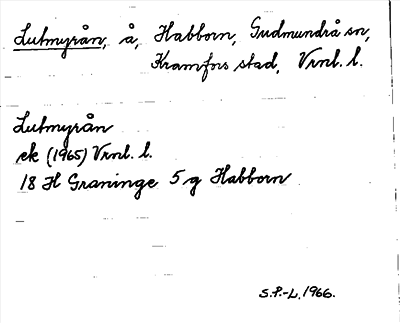 Lutmyrån, å, Habborn, Gudmundrå sn,
Kramfors stad, Vrnl. l.
Lutmyrån
ek (1965) Vrnl. l.
18 H Graninge 5 g Habborn
S.P.-L. 1966.